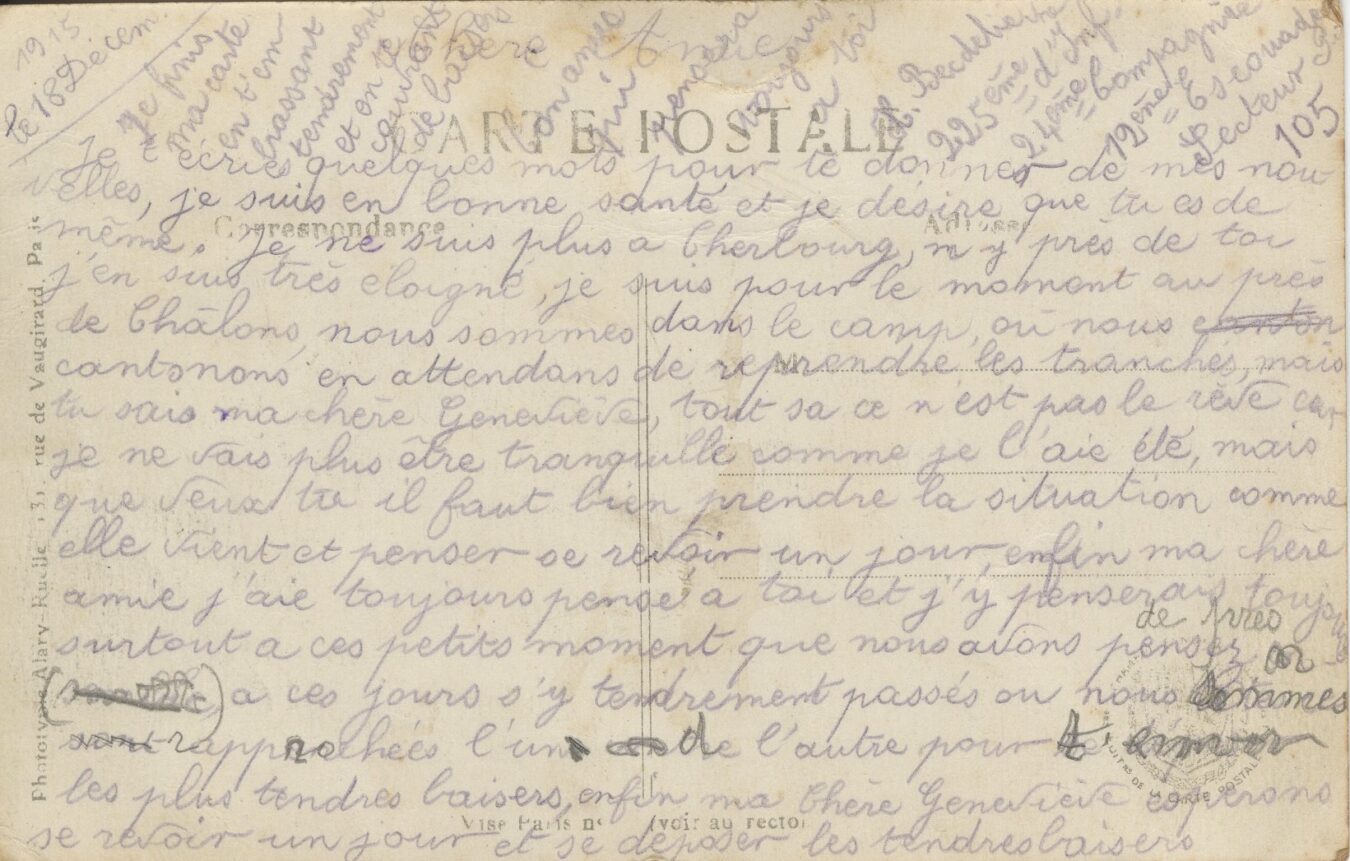 1915
le 18 Décem
Chère Amie
Je t'écris quelques mots pour te donner de mes nou
velles, je suis en bonne santé et je désire que tu es de
même. Je ne suis plus a Cherbourg, n'y près de toi
j'en suis très eloigné, je suis pour le moment au près
de Châlons, nous sommes dans le camp, où nous canton
cantonons en attendans de reprendre les tranchés, mais
tu sais ma chère Geneviève, tout sa ce n'est pas le rêve car
je ne vais plus être tranquille comme je l'aie été, mais
que veux tu il faut bien prendre la situation comme
elle vient et penser se revoir un jour, enfin ma chère
amie j'aie toujours pensé a toi et j'y penserais toujours
surtout a ces petits moment que nous avons penser
de près
a ces jours s'y tendrement passés ou nous sommes
rapprochées l'un de l'autre pour
les plus tendres baisers, enfin ma Chère Geneviève esperons
se revoir un jour et se déposer les tendres baisers
Je finis
ma carte
en t'em
brassant
tendrement
et en te
couvrant
de baisers
Ton ami
qui
pensera
toujours
a toi
225ème d'Inf
24ème Compagnie
12ème Escouade
Secteur
105
CARTE POSTALE
Correspondance
Adresse
M
Phototypie Alary-Ruelle, rue de Vaugirard, Paris
Visé Paris n° (voir au recto)
DE LA CARTE POSTALE